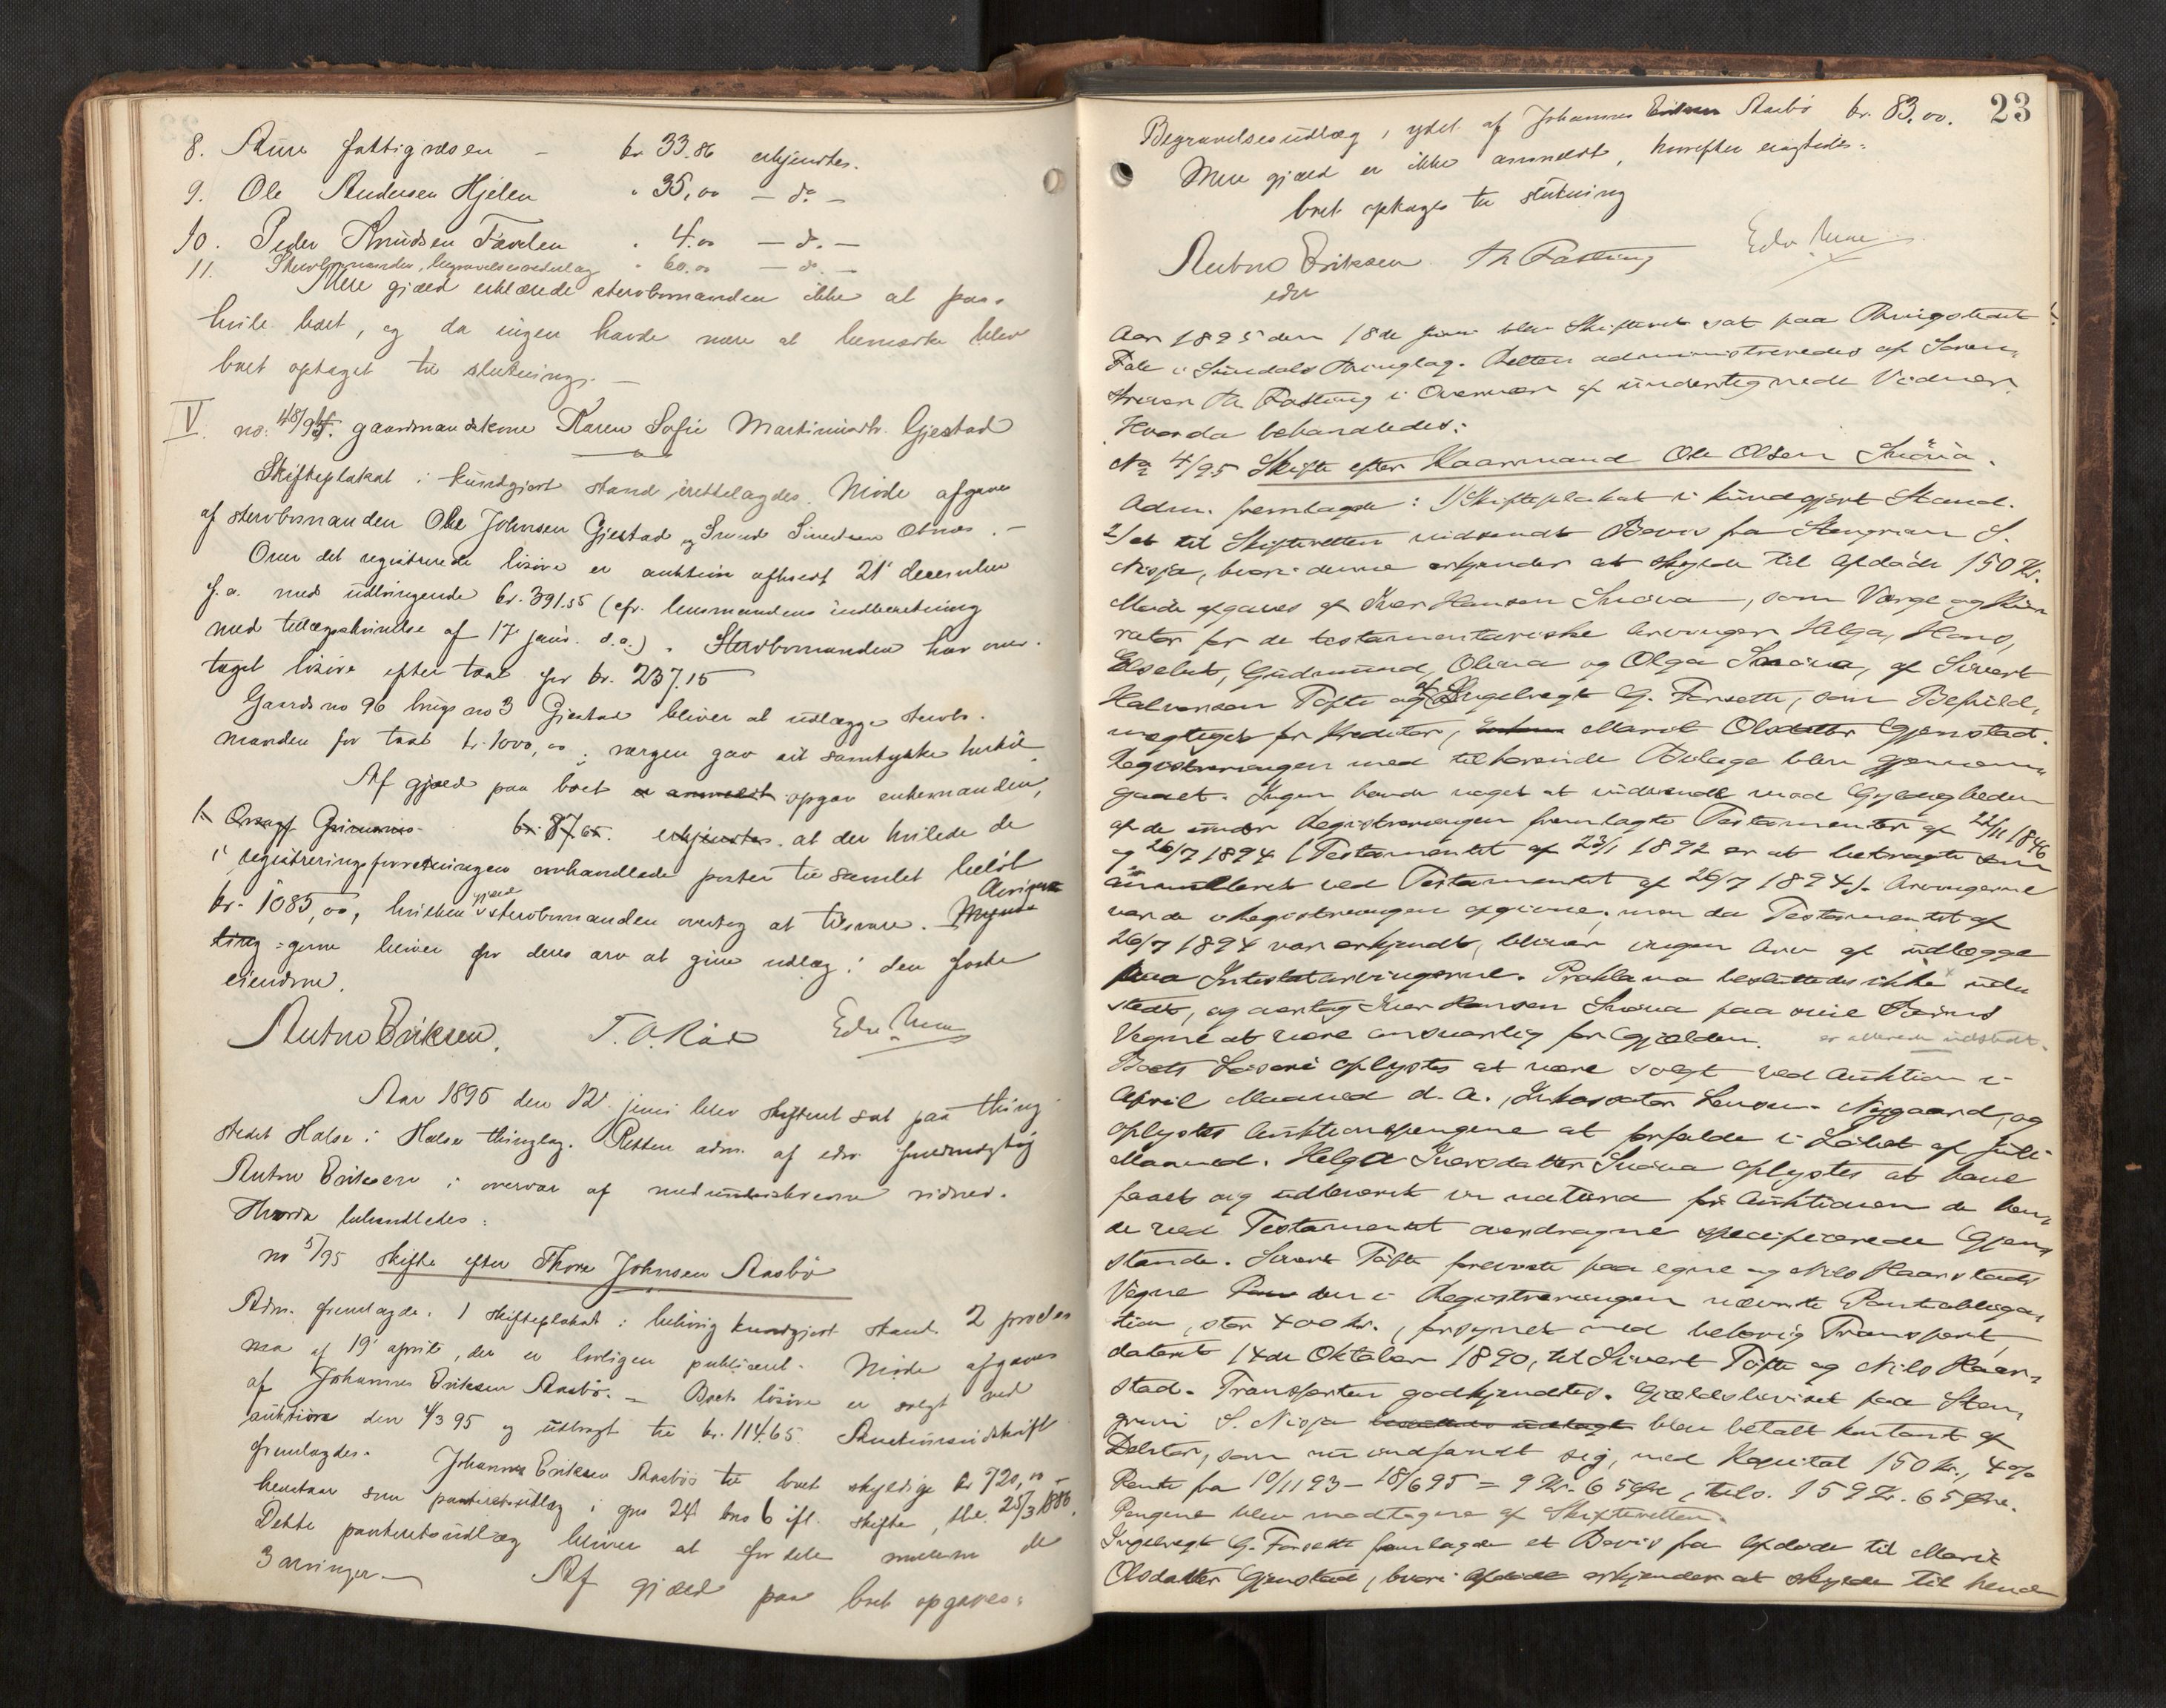 8. Aure fattigvæsen - kr 33.86 erkjendtes.
9. Ole Andersen Hjelen " 35,00 - do -
10. Peder Knudsen Tævelen " 4.00 - do -
11. Stervbomanden, begravelsesudlæg " 60.00 - do -
Mere gjæld erklærede stervbomanden ikke at paa-
hvile boet, og da ingen havde mere at bemærke blev
boet optaget til slutning. -
V. no. 48/94. gaardmandskone Karen Sofie Martinusdtr. Gjestad
Skifteplakat i kundgjort stand irettelagdes. Møde afgaves
af stervbomanden Ole Johnsen Gjestad og Sivert Sivertsen . -
Over det registrerede løsøre er auktion afholdt 21' december
f.a. med udbringende kr. 391.55 (cfr. lensmandens indberetning
med tillægsskrivelse af 17' januar d.a.). Stervbomanden har over-
taget løsøre efter taxt for kr. 237.15
Gaards no 96 brugs no 3 Gjestad bliver at udlægge stervbo-
manden for taxt kr. 1000,00; værgen gav sit samtykke hertil
Af gjæld paa boet er anmeldt opgav enkemanden,
1. kr. 87.65. erkjendtes. at der hvilede de
i registreringsforretningen omhandlede poster til samlet beløb
kr. 1085,00, hvilken gjæld stervbomanden overtog at tilsvare. Arvin-
gerne bliver for deres arv at give udlæg i den faste
eiendom.
Anton Eriksen. T. O. Edv
Aar 1895 den 12. juni blev skifteret sat paa thing-
stedet Halse i Halse thinglag. Retten adm. af edsv fuldmægtig
Anton Eriksen i overvær af medunderskrevne vidner.
Hvorda behandledes:
no 5/95 skifte efter Thore Johnsen Aasbø
Adm. fremlagde. 1 skifteplakat i behørig kundgjort stand. 2 procla-
ma af 19' april, der er lovligen publiceret. Møde afgaves
af Johannes Eriksen Aasbø. - Boets løsøre er solgt ved
auktion den 4/3 95 og udbragt til kr. 114.65. Auktionsudskrift
fremlagdes. Johannes Eriksen Aasbøs til boet skyldige kr 720,00 -
henstaar som panteretsudlæg i gno 24 bno 6 ifl. skifte, thl. 25/3 1886.
Dette panteretsudlæg bliver at fordele mellem de
3 arvinger. - Af gjæld paa boet opgaves:
23
Begravelsesudlæg, ydet af Johannes Eriksen Aasbø kr. 83,00.
Mere gjæld er ikke anmeldt, hvorefter eragtedes:
boet optages til slutning
Anton Eriksen Th Fasting Edv
edsv
Aar 1895 den 18de Juni blev Skifteret sat paa Thingstedet
Fale i Sundals Thinglag. Retten administreredes af Soren-
skriver Th Fasting i Overvær af undertegnede Vidner.
Hvorda behandledes:
No 4/95 Skifte efter Kaarmand Ole Olsen Snøva.
Adm. fremlagde: 1/Skifteplakat i kundgjort Stand.
2/et til Skifteretten indsendt Bevis fra Stengrim S.
Nisja, hvori denne erkjender at skylde til Afdøde 150 Kr.
Møde afgaves af Iver Hansen Snøva, som Værge og Ku-
rator for de testamentariske Arvinger Helga, Hans,
Elsebet, Gudmund, Olina og Olga Snøva, af Sivert
Halvorsen Tøfte og af Ingebregt G. Forseth, som Befuld-
mægtiget for Kreditor, Marit Olsdatter Gjenstad.
Registreringen med tilhørende Bilage blev gjennem-
gaaet. Ingen havde noget at indvende mod Gyldigheden
af de under Registreringen fremlagte Testamenter af 22/11 1846
og 26/7 1894 (Testamentet af 23/1 1892 er at betragte som
annulleret ved Testamentet af 26/7 1894). Arvingerne
var de i Registreringen opgivne; men da Testamentet af
26/7 1894 var erkjendt, bliver ingen Arv at udlægge
paa Intestatarvingerne. Proklama besluttedes ikke udste-
stedt, og overtog Iver Hansen Snøva paa sine Børns
Vegne at være ansvarlig for Gjælden. er allerede udstedt.
Boets Løsøre oplystes at være solgt ved Auktion i
April Maaned d. A., Inkassator Lensm. Nygaard, og
oplystes Auktionspengene at forfalde i Løbet af Juli
Maaned. Helga Iversdatter Snøva oplystes at have
faaet sig udleveret in natura før Auktionen de hen-
de ved Testamentet overdragne specificerede Gjen-
stande. Sivert Tøfte foreviste paa egne og Nils Haarstads
Vegne den i Registreringen nævnte Pantobliga-
tion, stor 400 kr., forsynet med behørig Transport,
dateret 14de Oktober 1890, til Sivert Tøfte og Nils Haar-
stad. Transporten godkjendtes. Gjældsbeviset paa Sten-
grim S. Nisja blev betalt kontant af
Debitor, som nu indfandt sig, med Kapital 150 Kr., 4%
Rente fra 10/11 93 - 18/6 95 = 9 Kr. 65 Øre, tils. 159 Kr. 65 Øre.
Pengene blev modtagne af Skifteretten.
Ingebregt G. Forseth fremlagde et Bevis fra Afdøde til Marit
Olsdatter Gjenstad, hvori Afdøde erkjender at skylde til hende